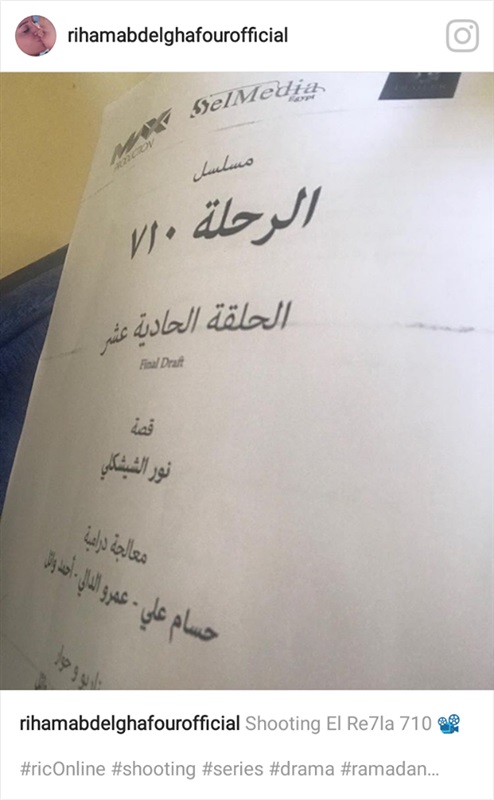 rihamabdelghafourofficial
MAX
PRODUCTION
SelMedia
Egypt
مسلسل
الرحلة ٧١٠
الحلقة الحادية عشر
Final Draft
قصة
نور الشيشكلي
معالجة درامية
حسام علي - عمرو الدالي - أحمد وائل
و حوار
rihamabdelghafourofficial Shooting El Re7la 710 📽
#ricOnline #shooting #series #drama #ramadan...